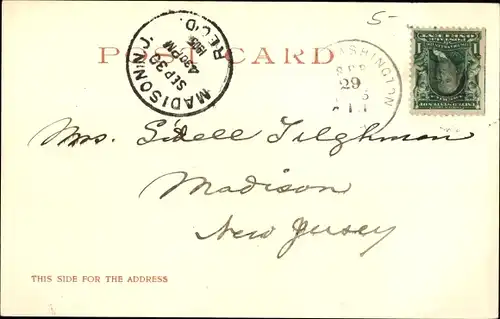 5-
POST CARD
MADISON N.J.
SEP 30
4-30 PM
1905
REC'D.
WASHINGTON
SEP
29
Mrs. Sidell Tilghman
Madison
New Jersey
THIS SIDE FOR THE ADDRESS